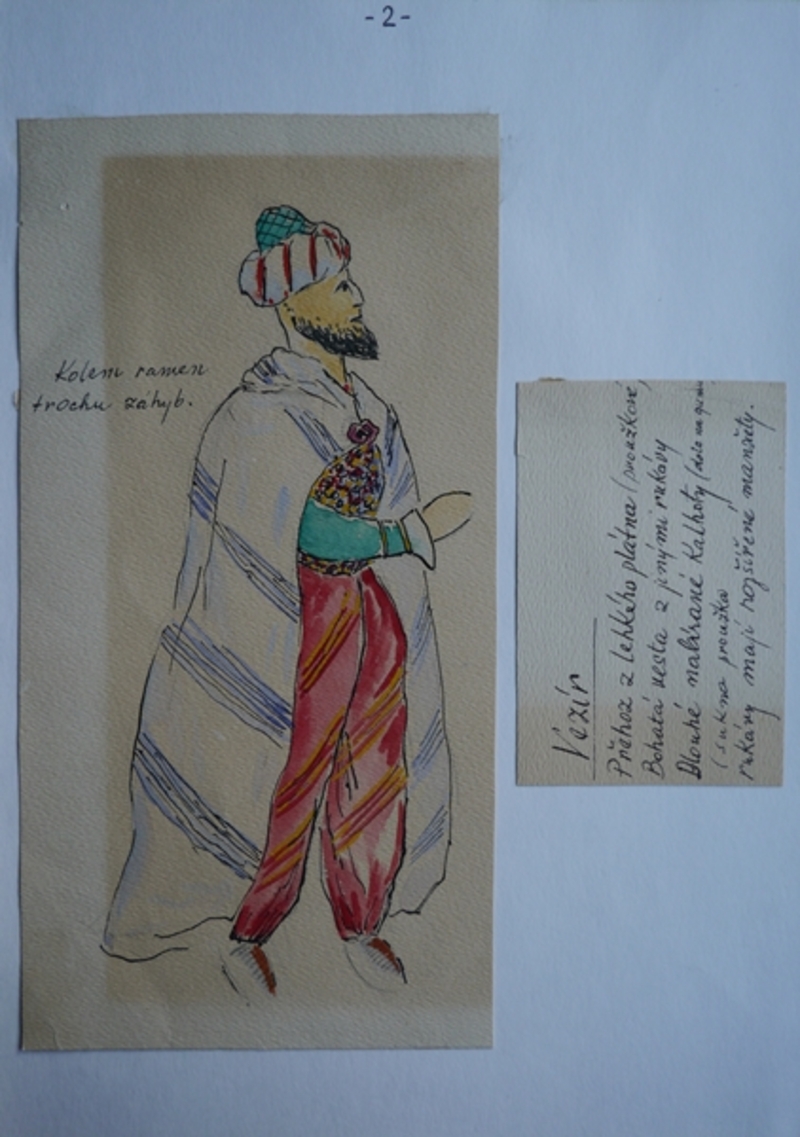 -2-
Kolem ramen
trochu záhyb.
Vezír
Přehoz z lehkého plátna (proužkové)
Bohatá vesta z jinými rukávy
Dlouhé nabírané Kalhoty (dole na gumu
(sukno proužka
rukávy mají rozšířené manžety.